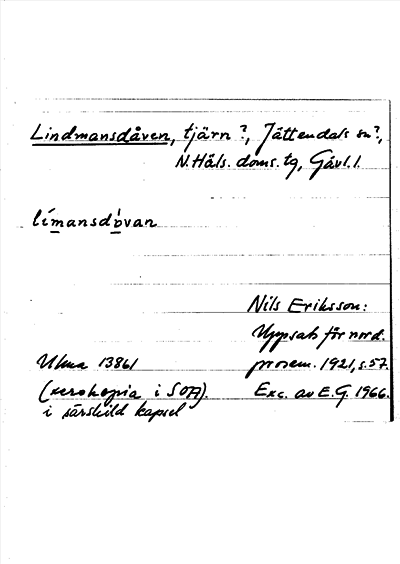 Lindmansdåven, tjärn?, Jättendals sn?,
N.Häls. doms. tg, Gävl.l.
límansdòvan
Nils Eriksson:
Uppsats för nord.
Ulma 13861 prosem. 1921, s.57.
(xerokopia i SOA). Exc. av E.G. 1966.
i särskild kapsel